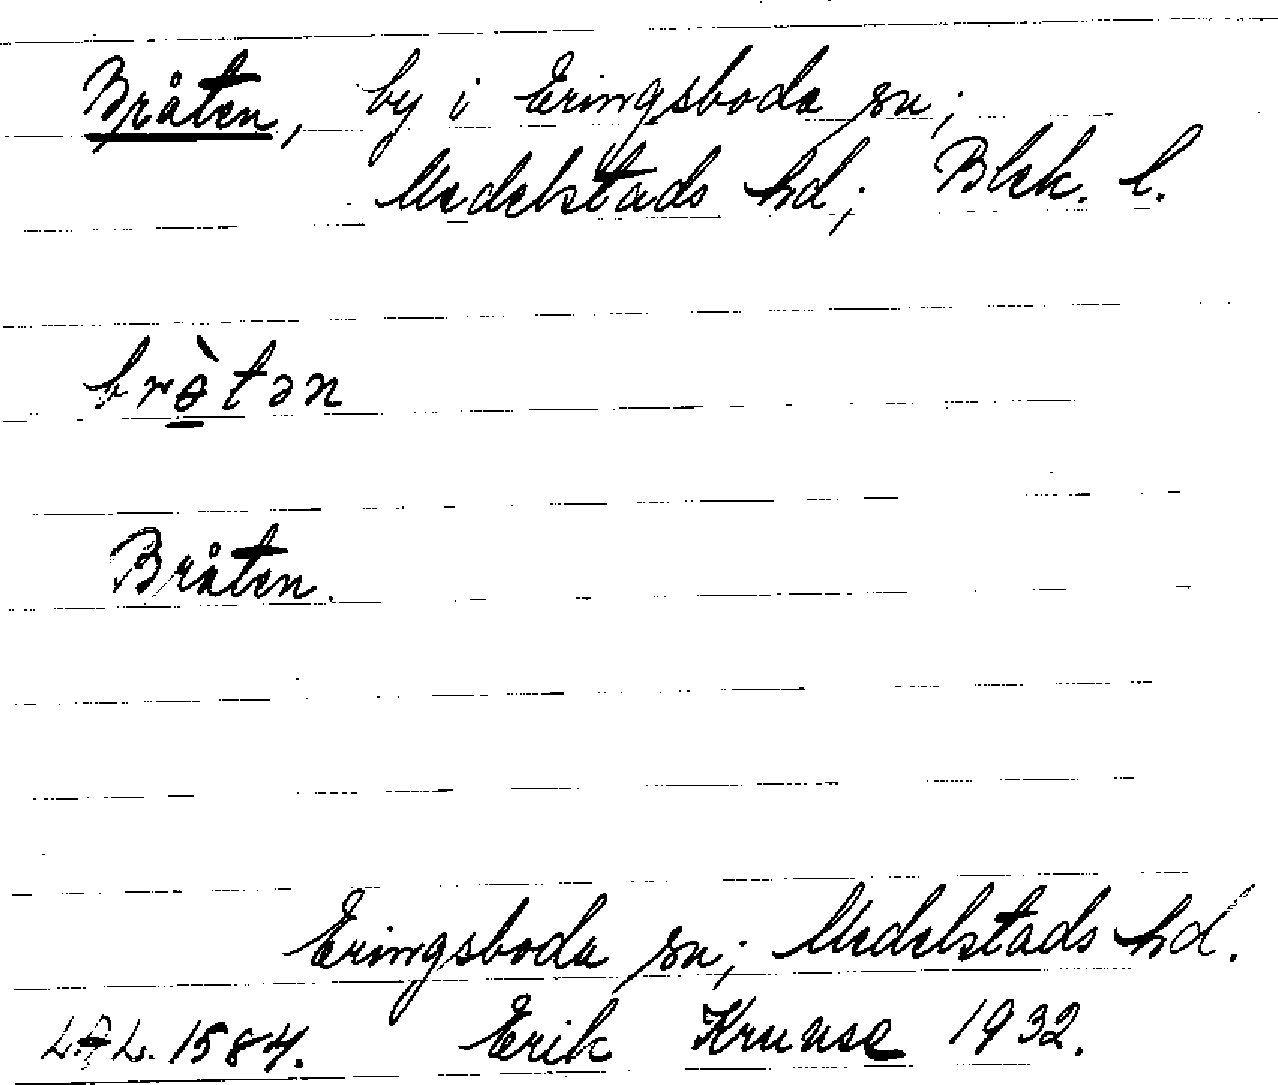 Bråten, by i Eringsboda sn;
Medelstads hd; Blek. l.
brò̲tən
Bråten.
Eringsboda sn; Medelstads hd.
LAL. 1584. Erik Kruuse 1932.